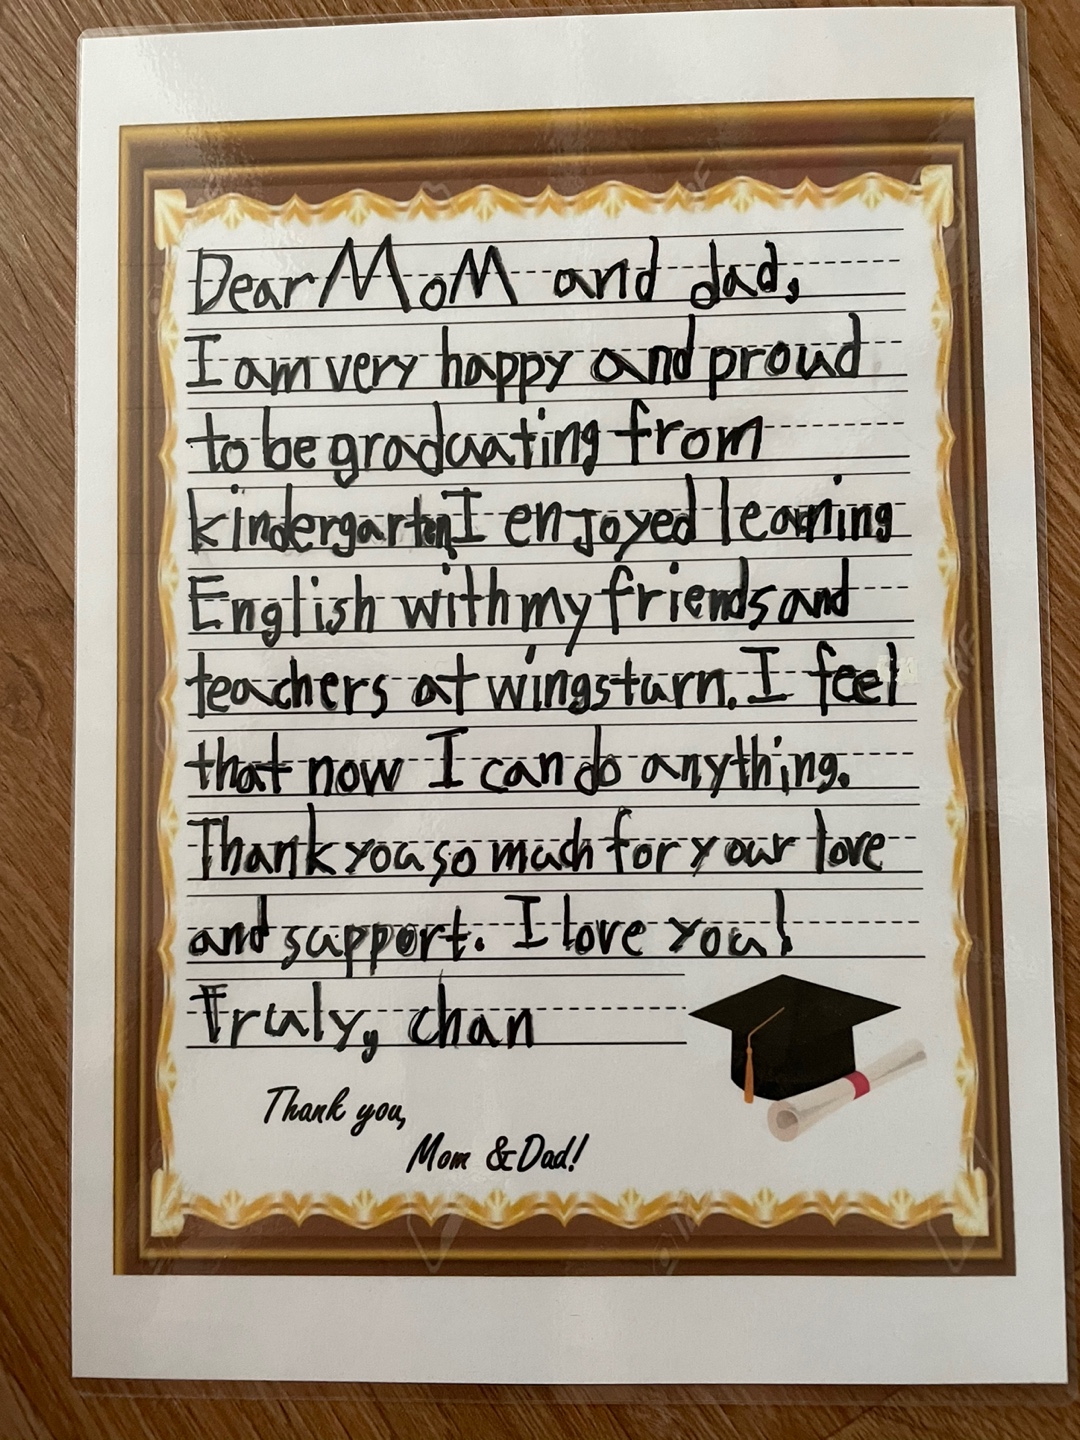 Dear MoM and dad,
I am very happy and proud
to be graduating from
kindergarten I enjoyed learning
English with my friends and
teachers at wingsturn. I feel
that now I can do anything.
Thank you so much for your love
and support. I love you!
Truly, chan
Thank you,
Mom & Dad!